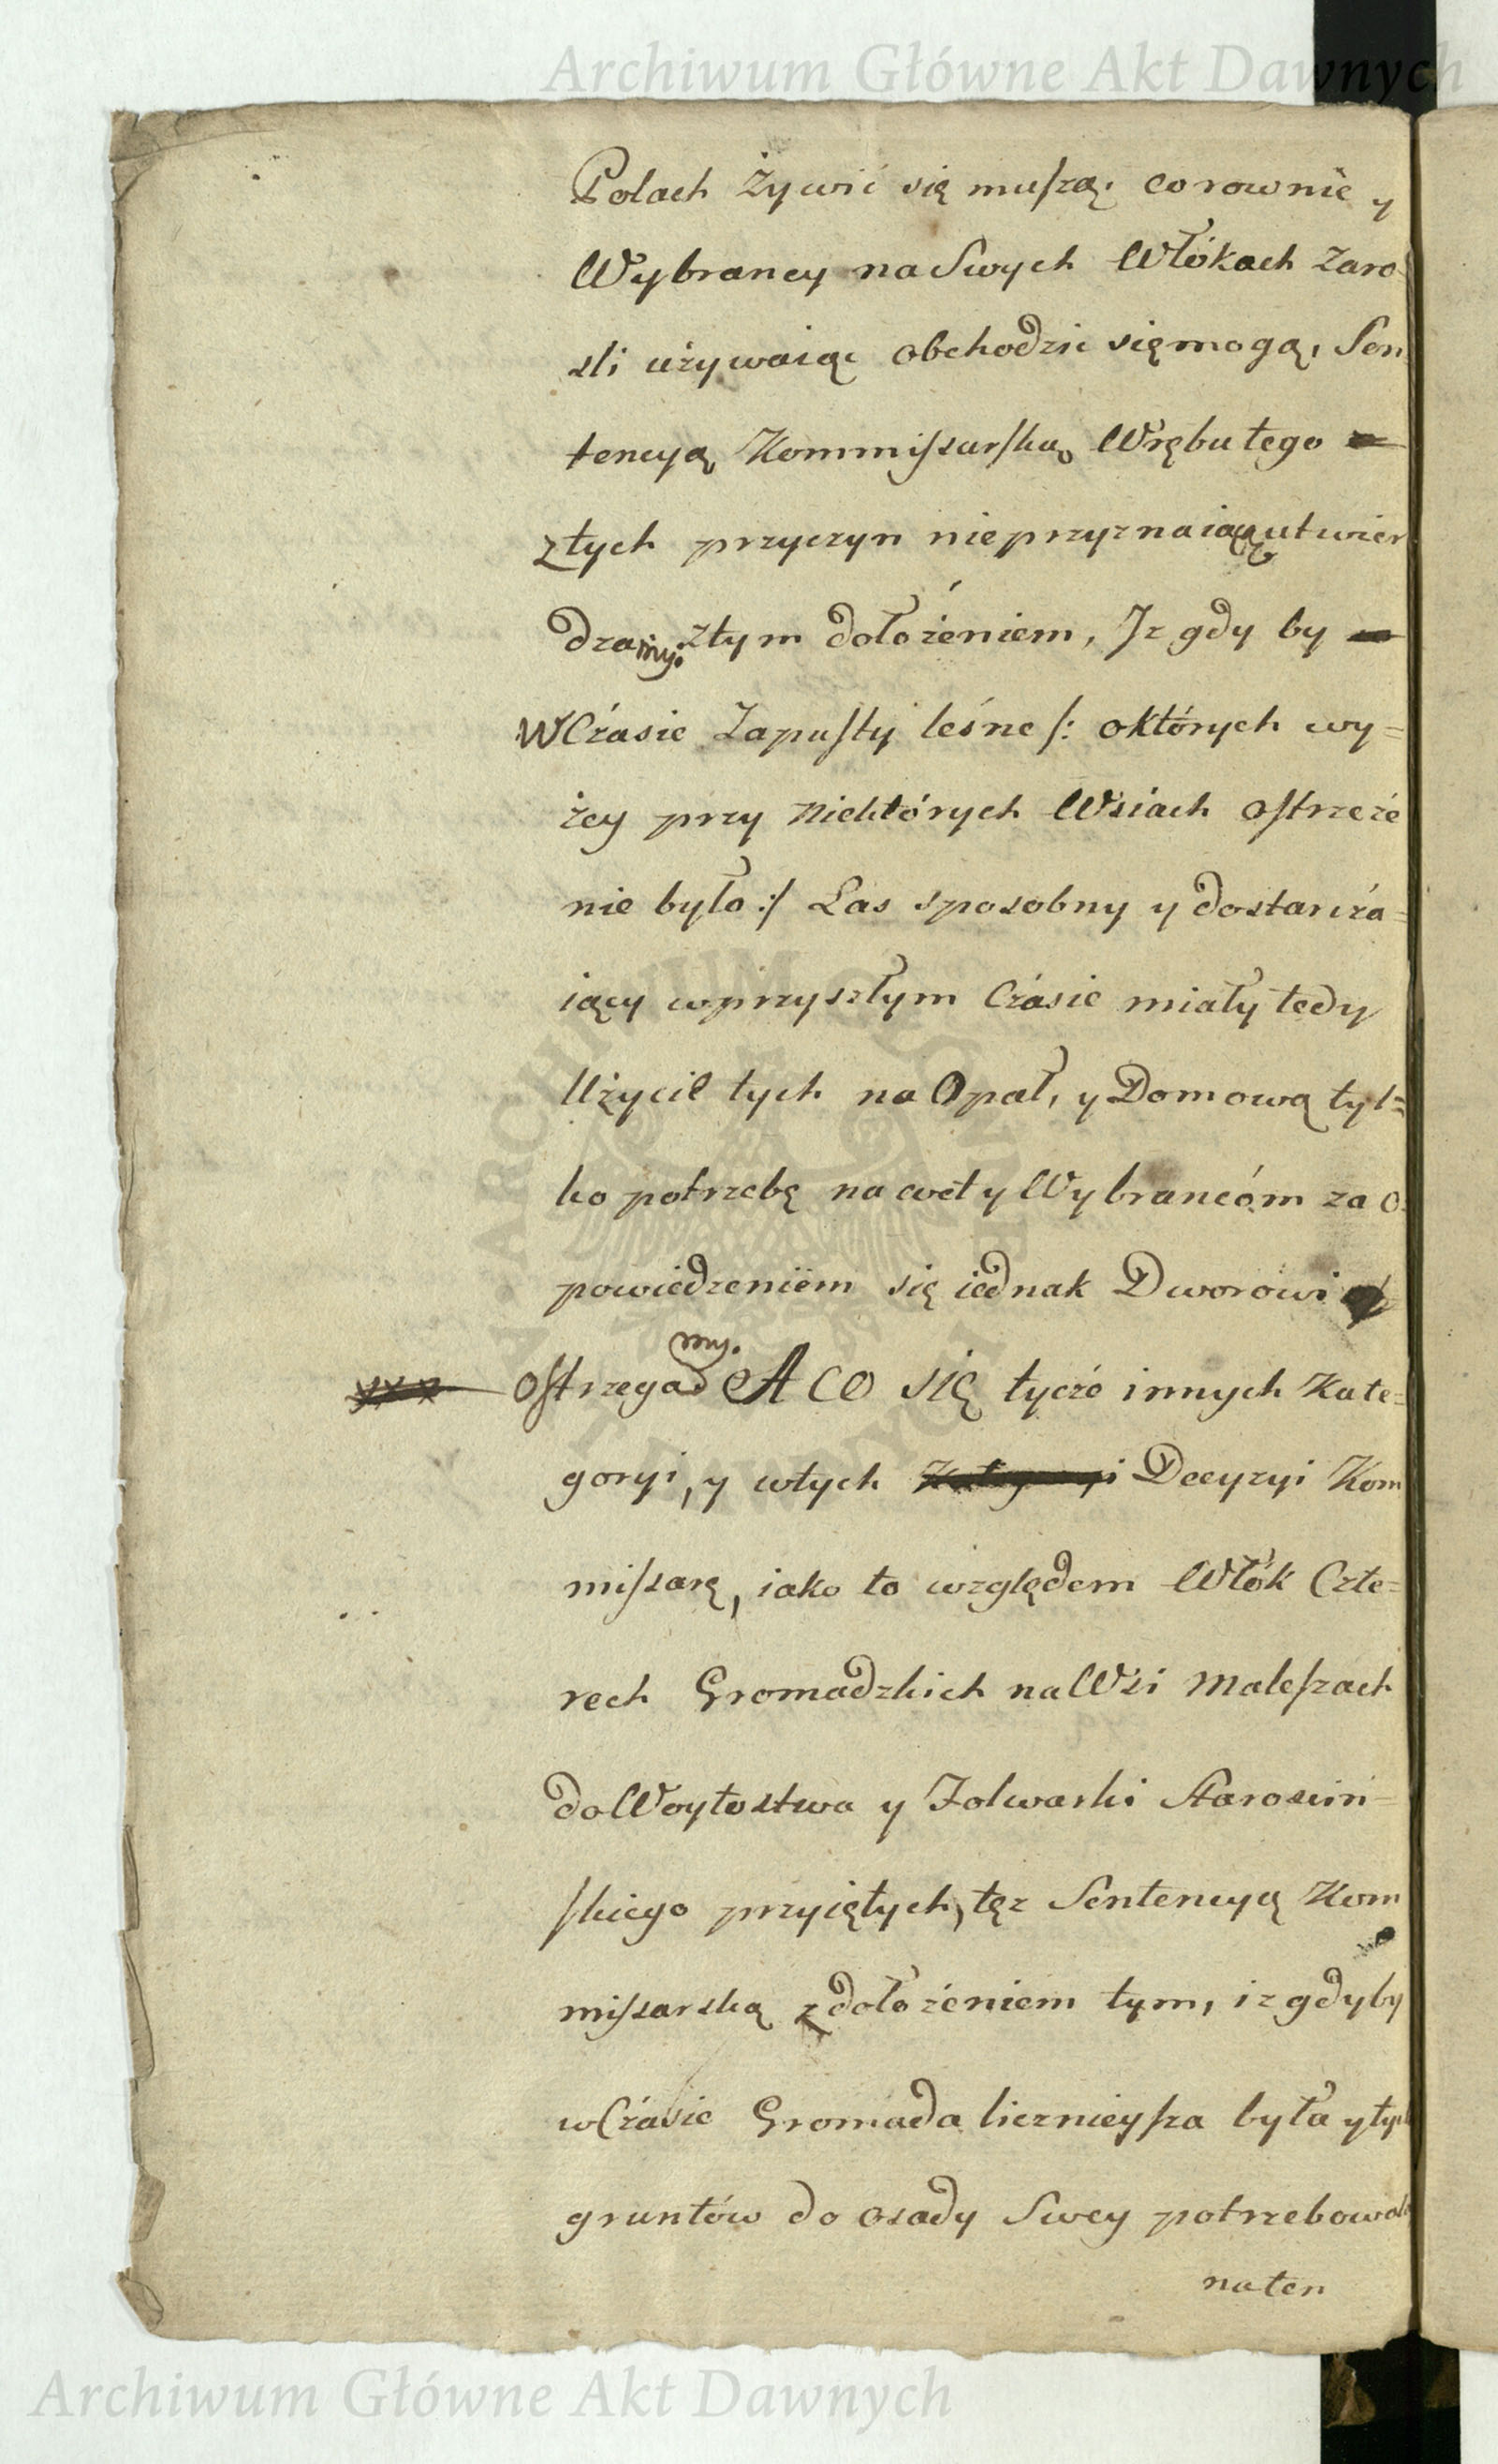 Archiwum Główne Akt Dawnych
Polach Żywić się muszą; co rownie y
Wybrancy na Swych Włókach Zaro-
sli używaiąc obchodzic się mogą, Sen
tencyą Kommissarską Wrębu tego
z tych przyczyn nieprzyznaiącą utwier
dzamy. z tym dołożeniem, Iz gdy by
W Czasie Zapusty leśne /: o których wy=
żey przy niektórych Wsiach ostrzeże
nie było :/ Las sposobny y dostarcza=
iący w przyszłym Czasie miały tedy
Użycie tych na Opał, y Domową tyl=
ko potrzebę nawet y Wybrancóm za o=
powiedzeniem się iednak Dworowi
ostrzegamy. A co się tycze innych Kate=
goryi, y w tych Decyzyi Kom
missarę, iako to względem Włók Czte=
rech Gromadzkich na Wsi Maleszach
do Woytostwa y Folwarki Starosciń=
skiego przyiętych, tęz Sentencyą Kom
missarską z dołożeniem tym, iz gdyby
w Czasie Gromada licznieysza była y tych
gruntów do osady Swey potrzebowała
na ten
Archiwum Główne Akt Dawnych